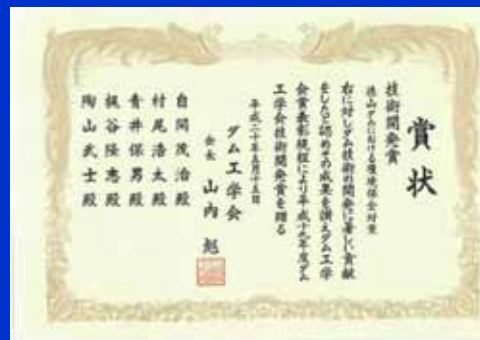 賞状
技術開発賞
徳山ダムにおける環境保全対策
右に対しダム技術の開発に著しい貢献
をしたと認めその成果を讃えダム工学
会賞表彰規程により平成十九年度ダム
工学会技術開発賞を贈る
平成二十年五月十五日
ダム工学会
会長 山内 彪
自関茂治殿
村尾浩太殿
青井保男殿
梶谷隆志殿
陶山武士殿